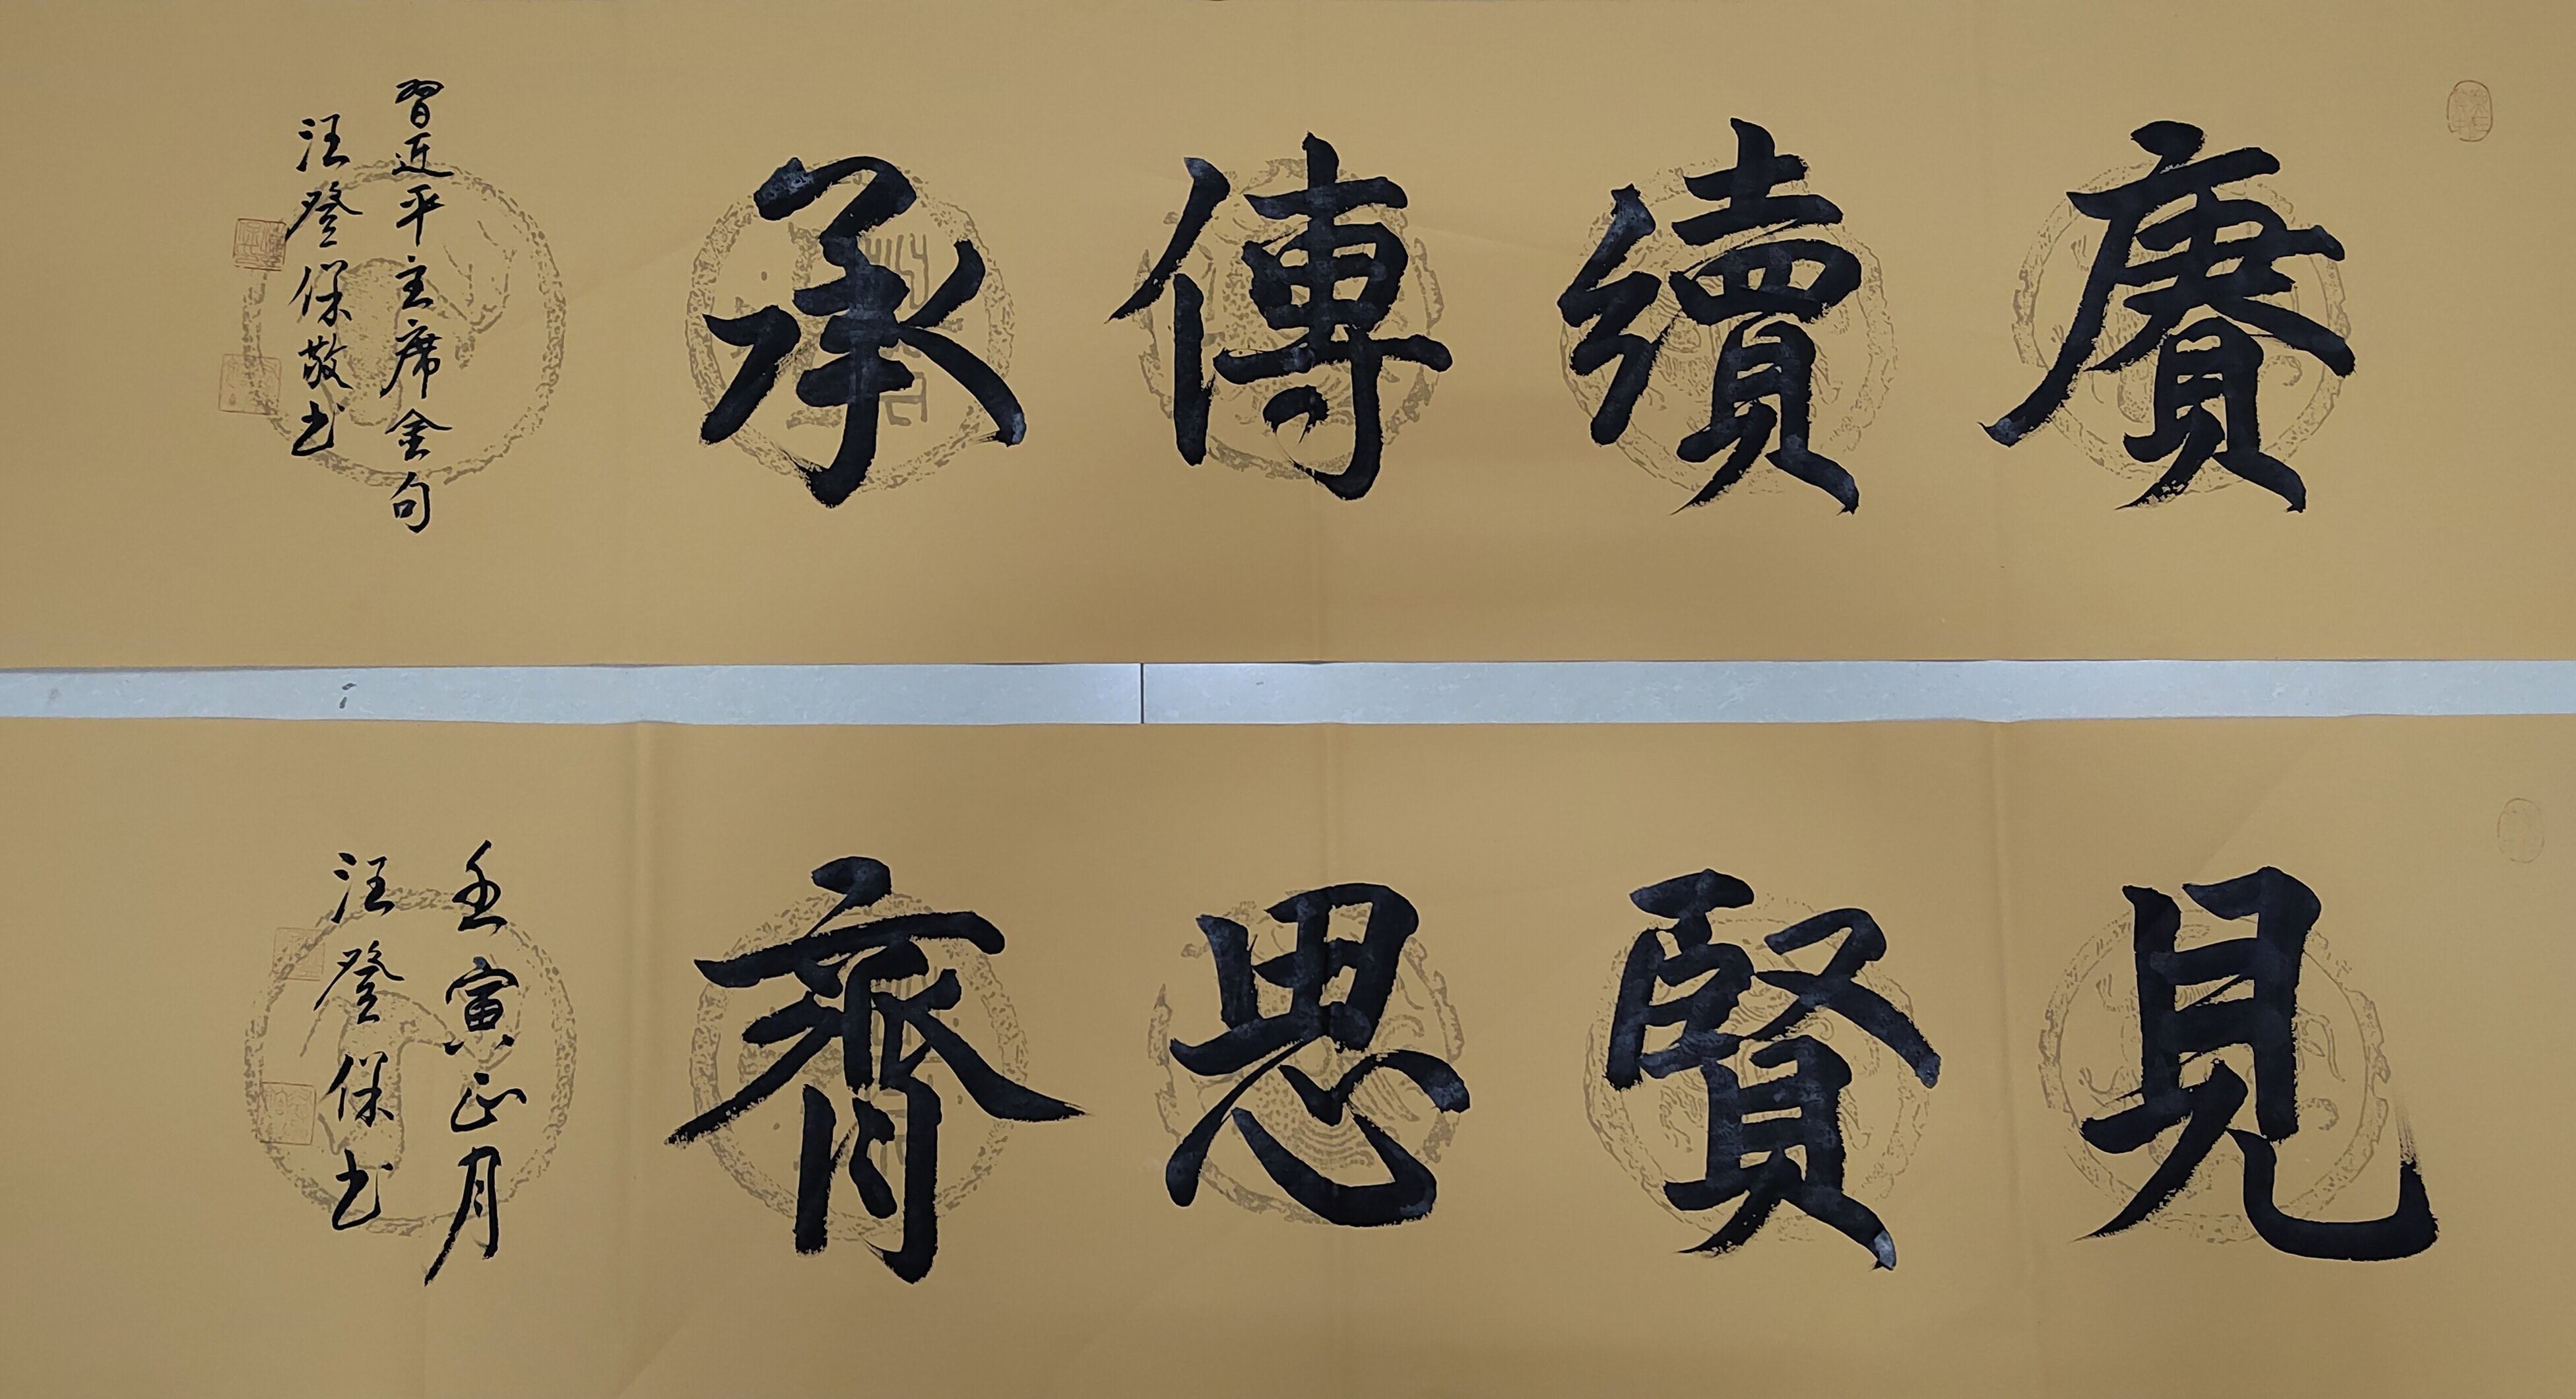 賡續傳承
習近平主席金句
汪登保敬书
見賢思齊
壬寅正月
汪登保书